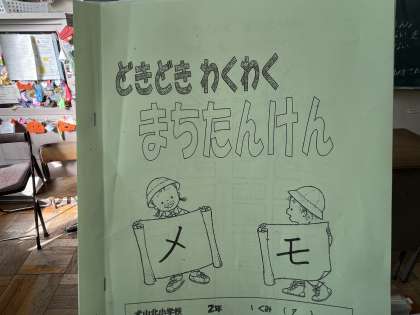 どきどき わくわく
まちたんけん
メモ
犬山北小学校 2年 1くみ